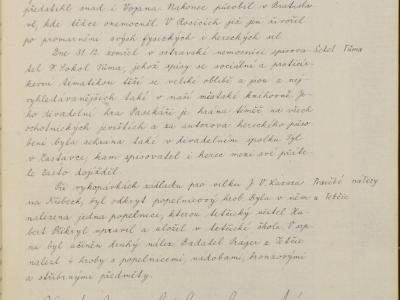 předstihl snad i Vojana. Nakonec působil v Bratisla-
vě, kde těžce onemocněl. V Rosicích již jen živořil
po promarnění svých fysických i hereckých sil.
Dne 31.12. zemřel v ostravské nemocnici spisova-
Sokol Tůma
tel F. Sokol Tůma, jehož spisy se sociální a protižis-
kovní tematikou těší se veliké oblibě a jsou z nej-
vyhledávanějších také v naší městské knihovně. Je-
ho divadelní hra Pasekáři je hrána téměř na všech
ochotnických jevištích a za autorova hereckého půso-
bení byla sehrána také v divadelním spolku Tyl
v Zastávce, kam spisovatel i herec mezi své přáte-
le často dojížděl.
Při výkopávkách základu pro vilku J. V.
Pravěké nálezy
na Kübech, byl odkryt popelnicový hrob. Byla v něm
v Tetčic
nalezena jedna popelnice, kterou tetčický učitel Hu-
bert Přikryl upravil a uložil v tetčické škole. V srp-
nu byl učiněn druhý nález. Badatel z Tetčic
nalezl 4 hroby s popelnicemi, nádobami, bronzovými
a stříbrnými předměty.